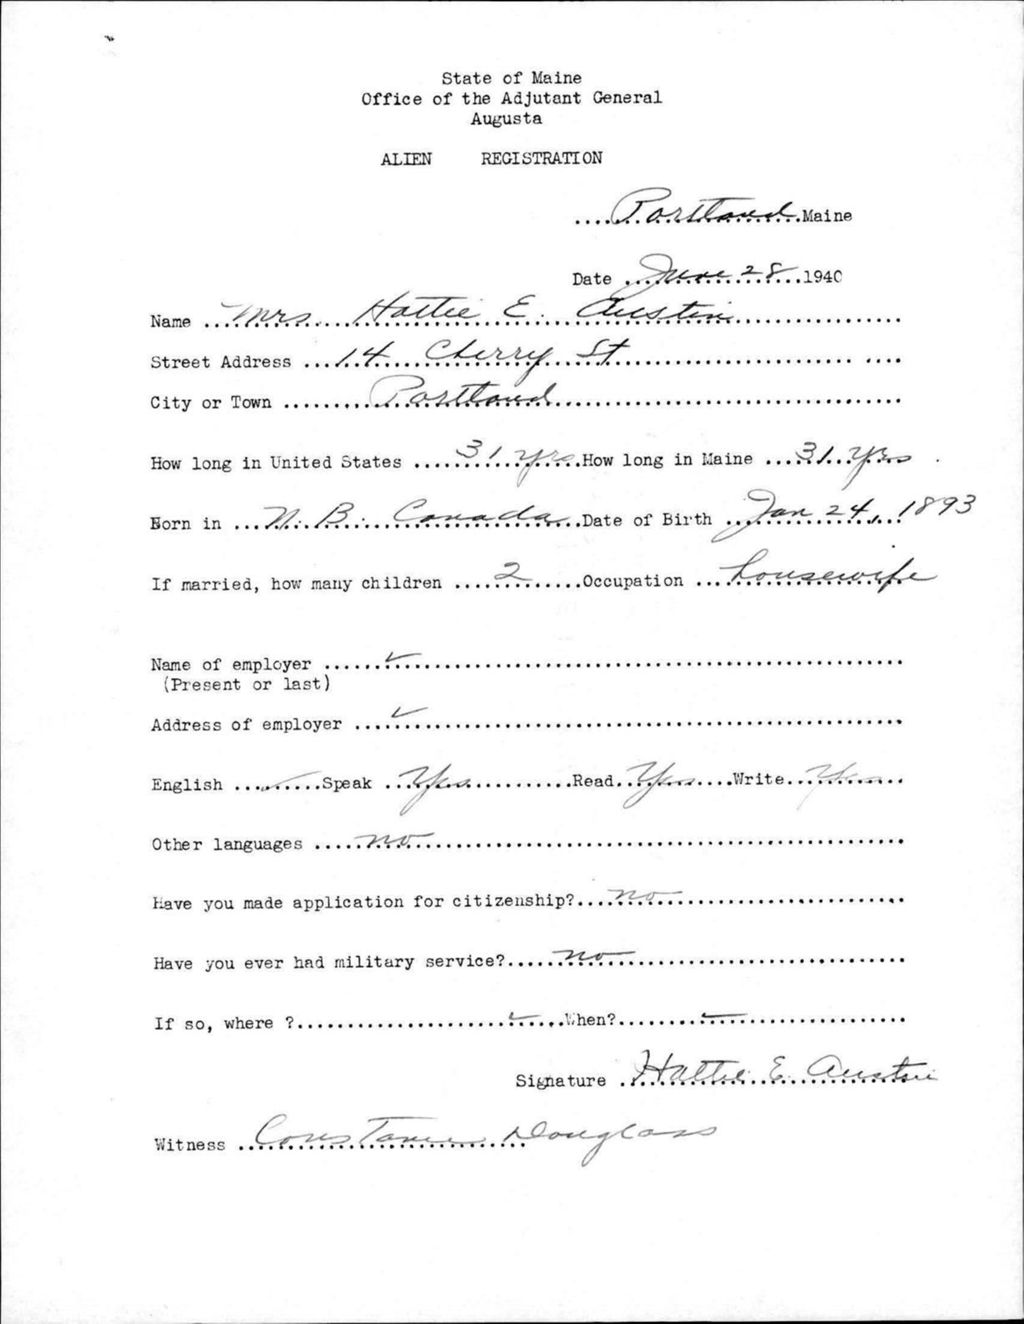 State of Maine
Office of the Adjutant General
Augusta
ALIEN REGISTRATION
....Portland....Maine
Date ....June 28....1940
Name ...Mrs. Hattie E. Austin...
Street Address ...14 Cherry St...
City or Town ...Portland...
How long in United States ...31 yrs...How long in Maine ...31 yrs.
Born in ...N. B. Canada...Date of Birth ...Jan 24, 1893
If married, how many children ...2...Occupation ...housewife
Name of employer ...✓...
(Present or last)
Address of employer ...✓...
English ...✓...Speak ...Yes...Read...Yes...Write...Yes...
Other languages ...no...
Have you made application for citizenship?...no...
Have you ever had military service?...no...
If so, where ?...✓...When?...✓...
Signature ...Hattie E. Austin
Witness ...Constance Douglass